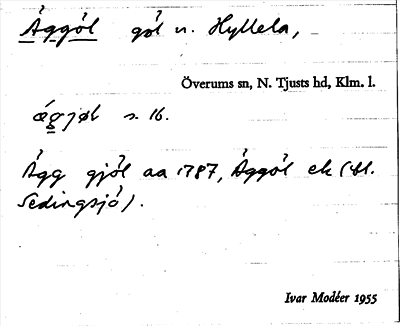 Åggöl göl n. Hyllela,
Överums sn, N. Tjusts hd, Klm. l.
ágjøl s. 16.
Ågg gjöl aa 1787, Åggöl ek (bl.
Sedingsjö).
Ivar Modéer 1955